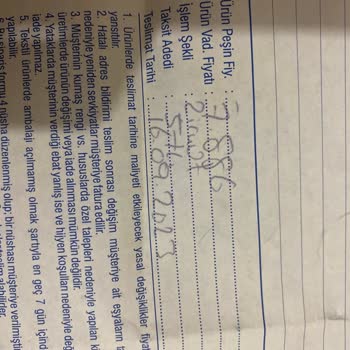 Ürün Peşin Fiy. : 7.886
Ürün Vad. Fiyatı :
İşlem Şekli :
Taksit Adedi :
Teslimat Tarihi : 16.09.2023
1. Ürünlerde teslimat tarihine maliyeti etkileyecek yasal değişiklikler fiyat
yansıtılır.
2. Hatalı adres bildirimi teslim sonrası değişim müşteriye ait eşyaların ta
nedeniyle yeniden sevkiyatlar müşteriye fatura edilir.
3. Müşterinin kumaş rengi vs. hususlarda özel talepleri nedeniyle yapılan k
üretimlerde ürünün değişimi veya iade alınması mümkün değildir.
4. Yataklarda müşterinin verdiği ebat yanlış ise ve hijyen koşulları nedeniyle değ
iade yapılmaz.
5. Tekstil ürünlerde ambalajı açılmamış olmak şartıyla en geç 7 gün içind
yapılabilir.
6. Bu sipariş formu 4 nüsha düzenlenmiş olup; bir nüshası müşteriye verilmiştir